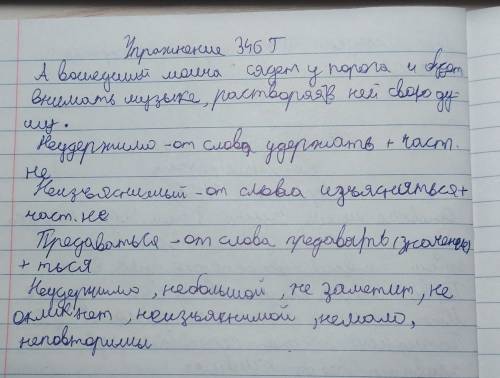 Упражнение 346 Т
А вошедший молча сядет у порога и будет
внимать музыке, растворяя в ней свою ду-
шу.
Неудержимо - от слова удержать + част.
не
Неизъяснимый - от слова изъясняться +
част. не
Предаваться - от слова предавать (значение)
+ ться
Неудержимо, небольшой, не заметит, не
окликнет, неизъяснимой, немало,
неповторимы